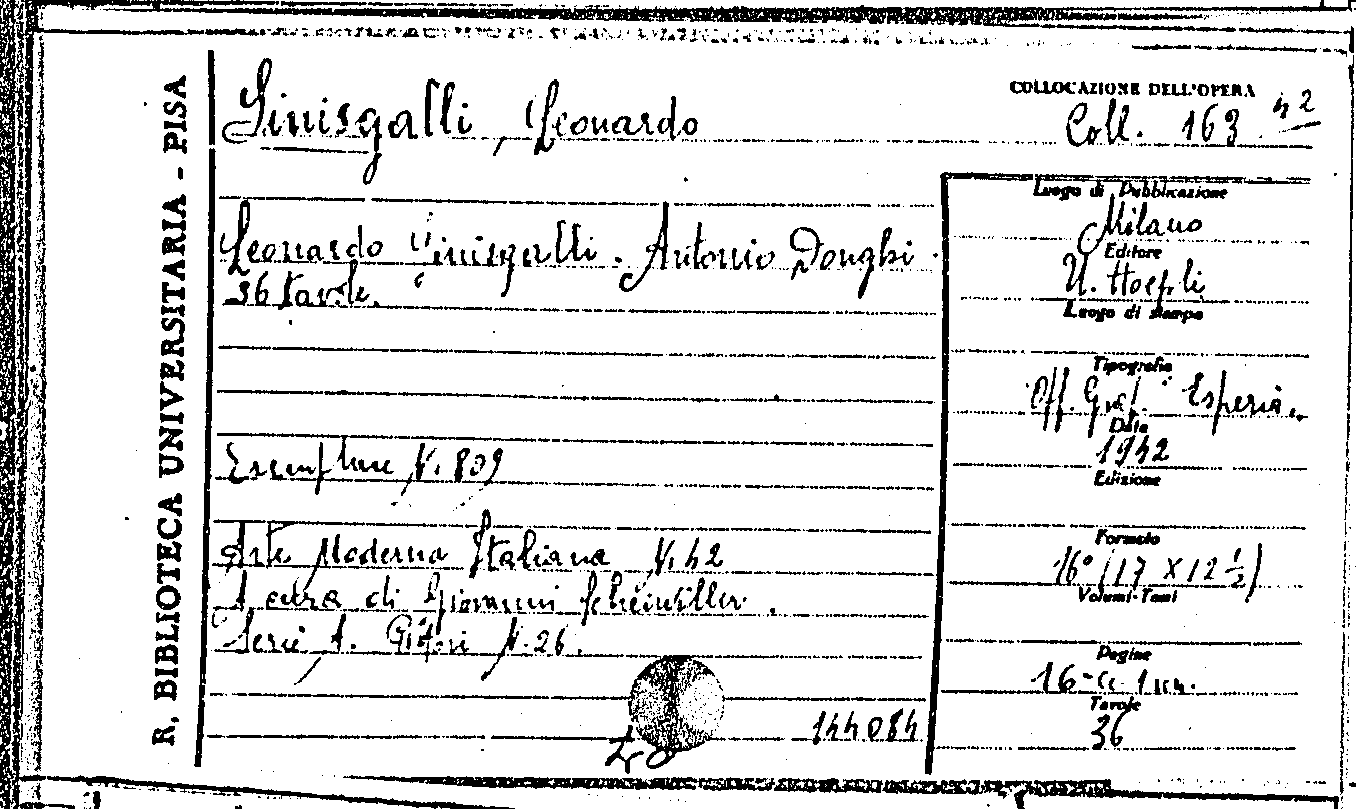 R. BIBLIOTECA UNIVERSITARIA - PISA
Sinisgalli, Leonardo
COLLOCAZIONE DELL'OPERA
Coll. 163 42
Leonardo Sinisgalli. Antonio Donghi.
36 tavole.
Esemplare N. 809
Arte Moderna Italiana N. 42
A cura di Giovanni Scheiwiller.
Serie A. Pittori N. 26.
144084
Luogo di Pubblicazione
Milano
Editore
U. Hoepli
Luogo di stampa
Tipografia
Off. Graf. "Esperia"
Data
1942
Edizione
Formato
16° (17 x 12 1/2)
Volumi-Tomi
Pagine
16
Tavole
36